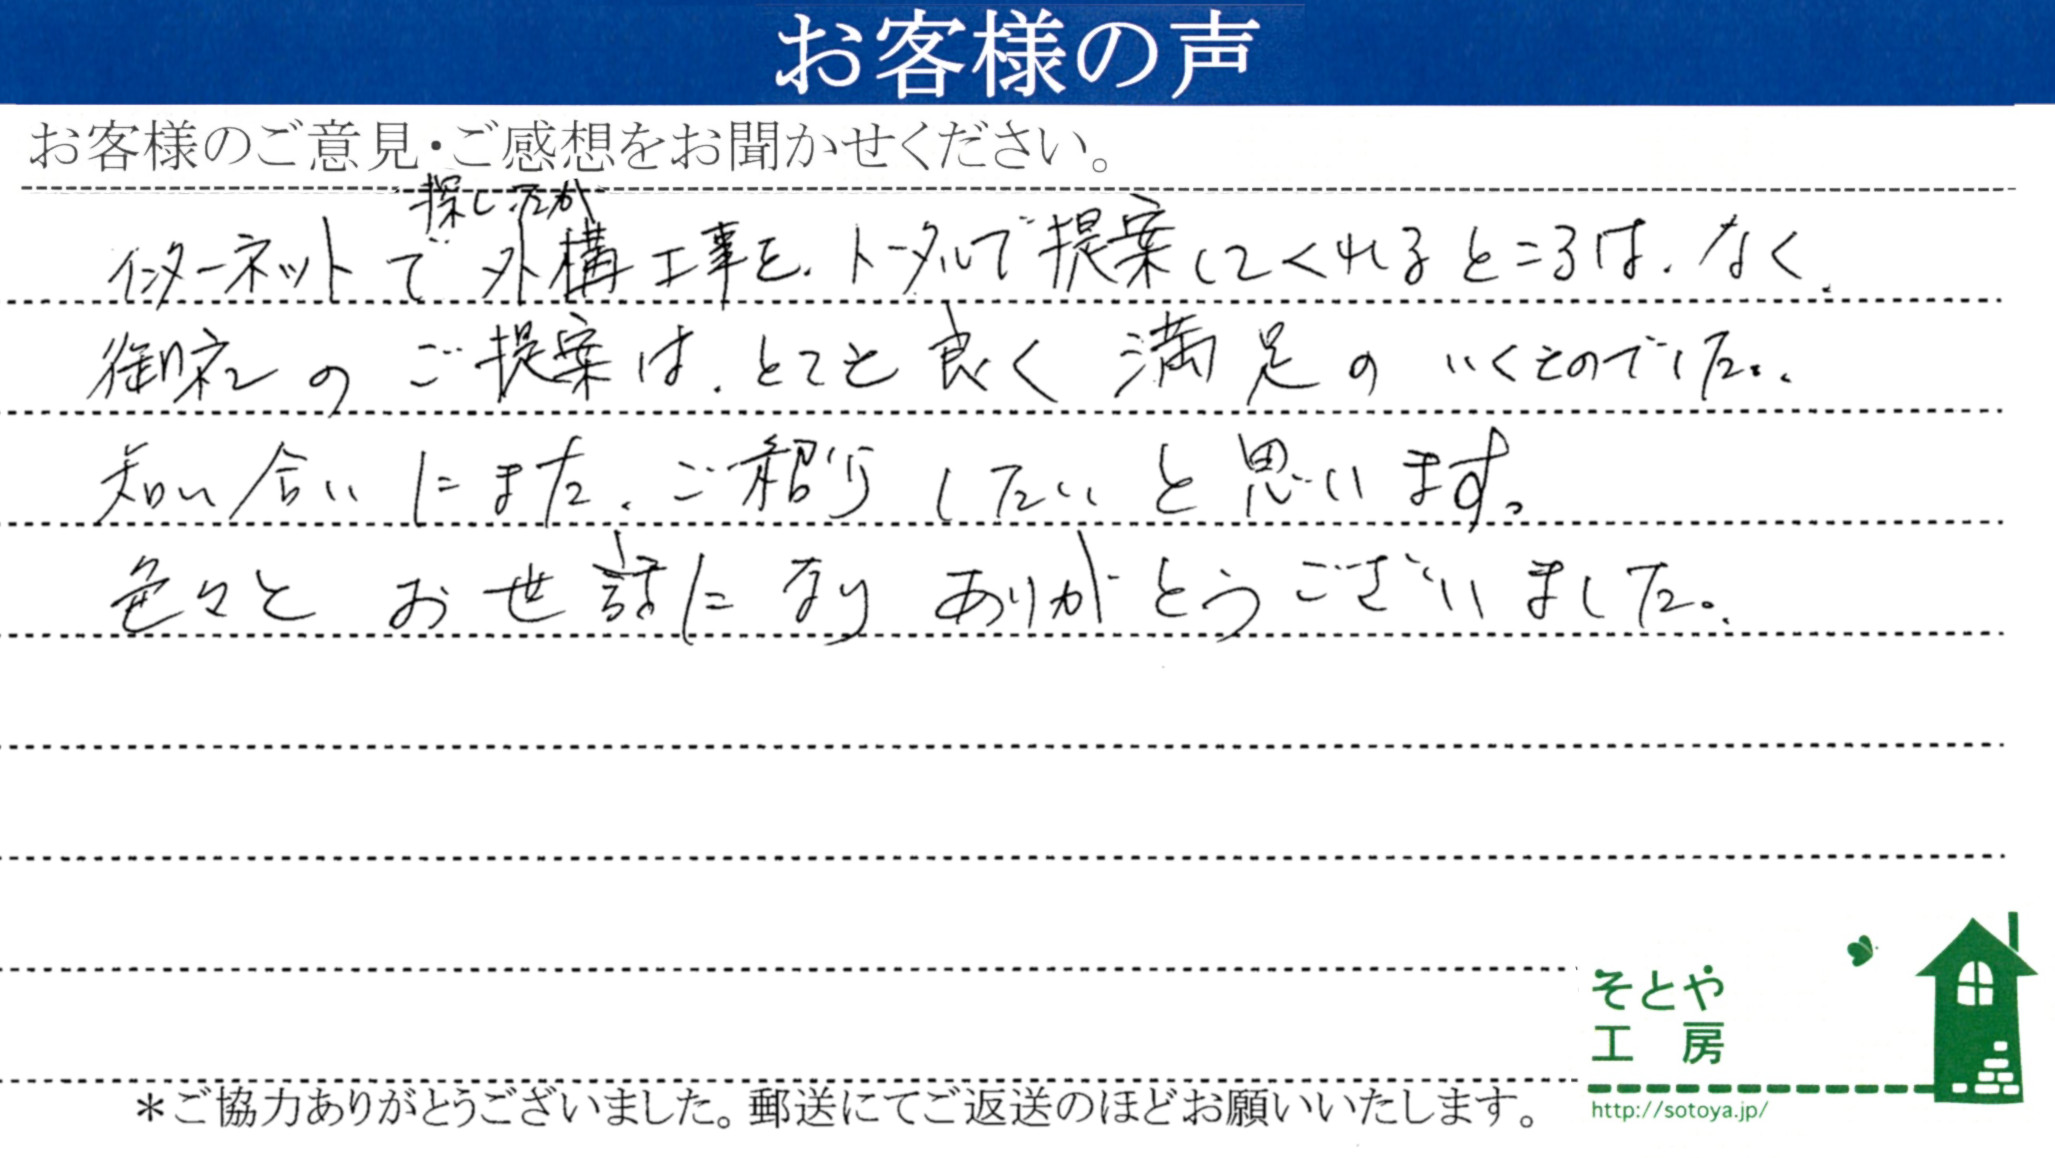 お客様の声
お客様のご意見・ご感想をお聞かせください。
探したが
インターネットで外構工事を、トータルで提案してくれるところは、なく、
御社のご提案は、とても良く満足のいくものでした。
知い合いにまた、ご紹介したいと思います。
色々とお世話になりありがとうございました。
そとや
工房
http://sotoya.jp/
＊ご協力ありがとうございました。郵送にてご返送のほどお願いいたします。